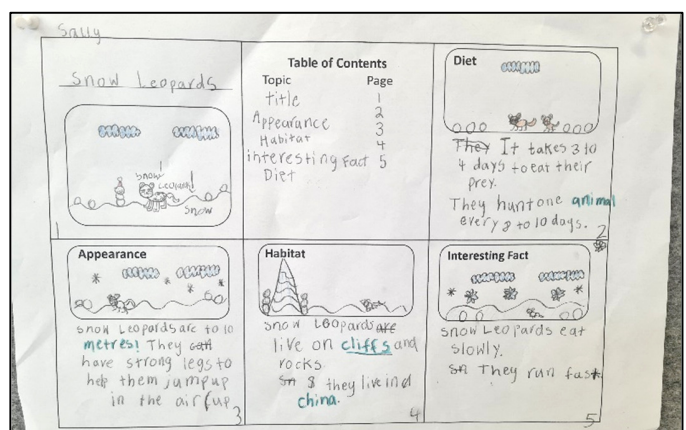 Sally
Snow Leopards
snow
Leopard
snow
1
Table of Contents
Topic Page
title 1
Appearance 2
Habitat 3
interesting Fact 4
Diet 5
Diet
They It takes 3 to
4 days to eat their
prey.
They hunt one animal
every 8 to 10 days.
2
Appearance
snow Leopards are to 10
metres! They can
have strong legs to
help them jump up
in the air
3
Habitat
snow Leopards are
live on cliffs and
rocks
they live in
china.
4
Interesting Fact
snow Leopards eat
slowly.
sn They run fast
5